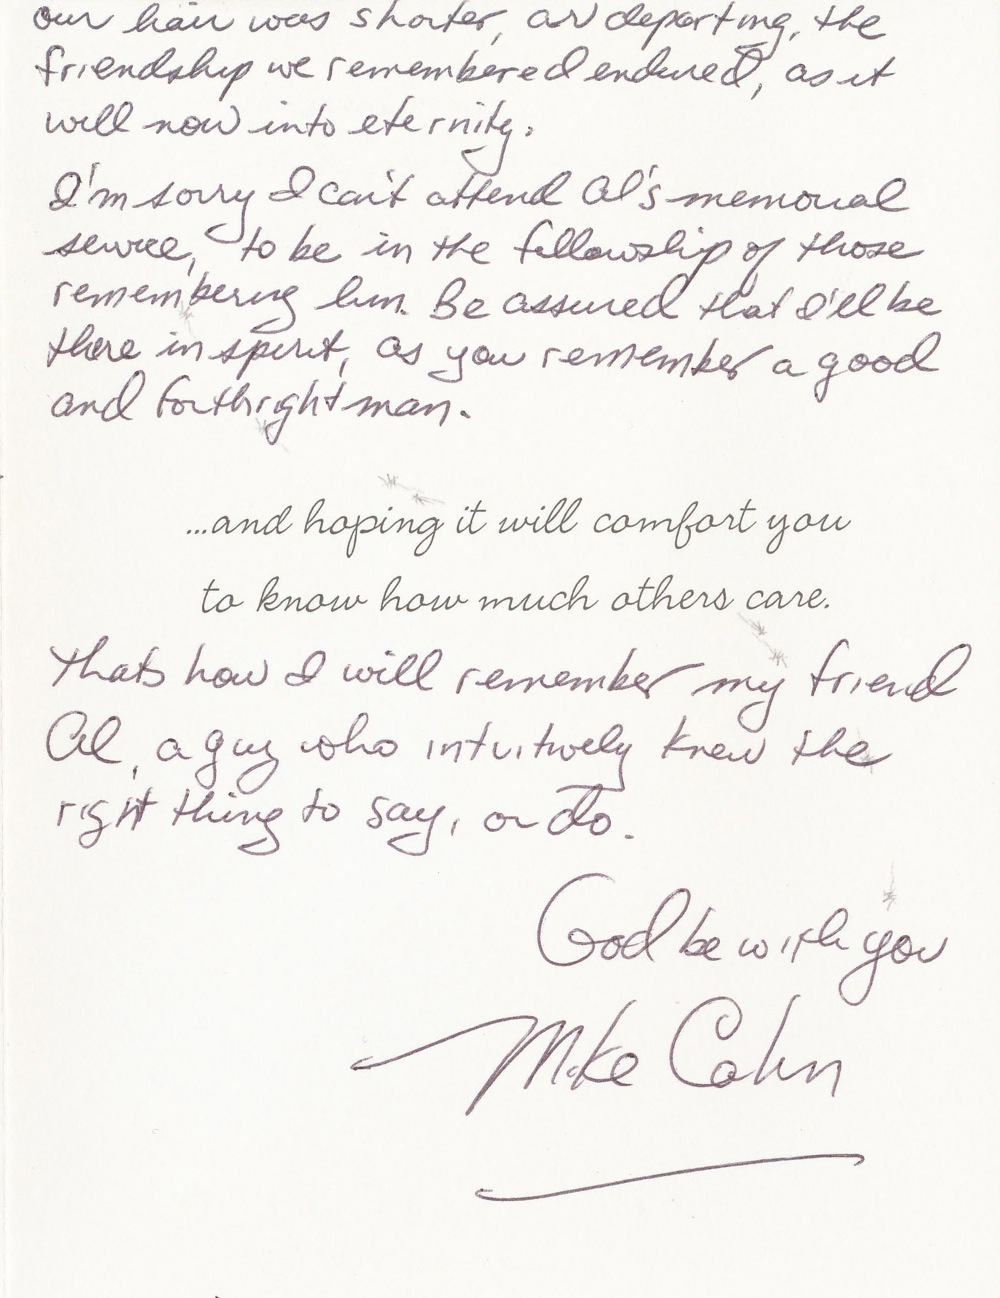 our hair was shorter, or departing, the
friendship we remembered endured, as it
will now into eternity.
I'm sorry I can't attend Al's memorial
service, to be in the fellowship of those
remembering him. Be assured that I'll be
there in spirit, as you remember a good
and forthright man.
...and hoping it will comfort you
to know how much others care.
Thats how I will remember my friend
Al, a guy who intuitively knew the
right thing to say, or do.
God be with you
Mike Cahn